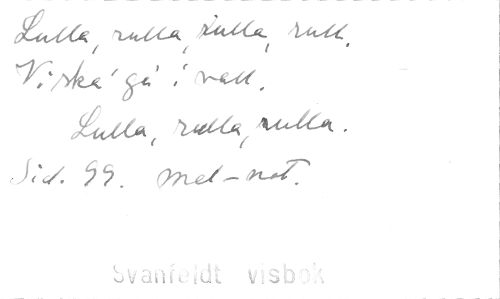 Lulla, rulla, rulla, rull.
Vi ska' gå i vall.
Lulla, rulla, rulla.
Sid. 99. Mel-not.
Svanfeldt visbok